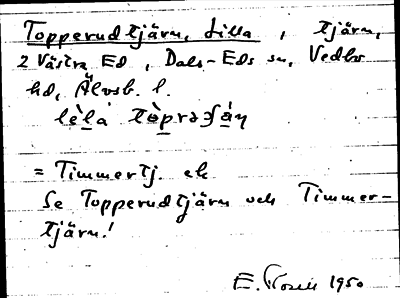 Topperudtjärn, Lilla, tjärn,
2 Västra Ed, Dals-Eds sn, Vedbo
hd, Älvsb. l.
= Timmertj. ek
Se Topperudtjärn och Timmer-
tjärn!
E. Rosell 1950